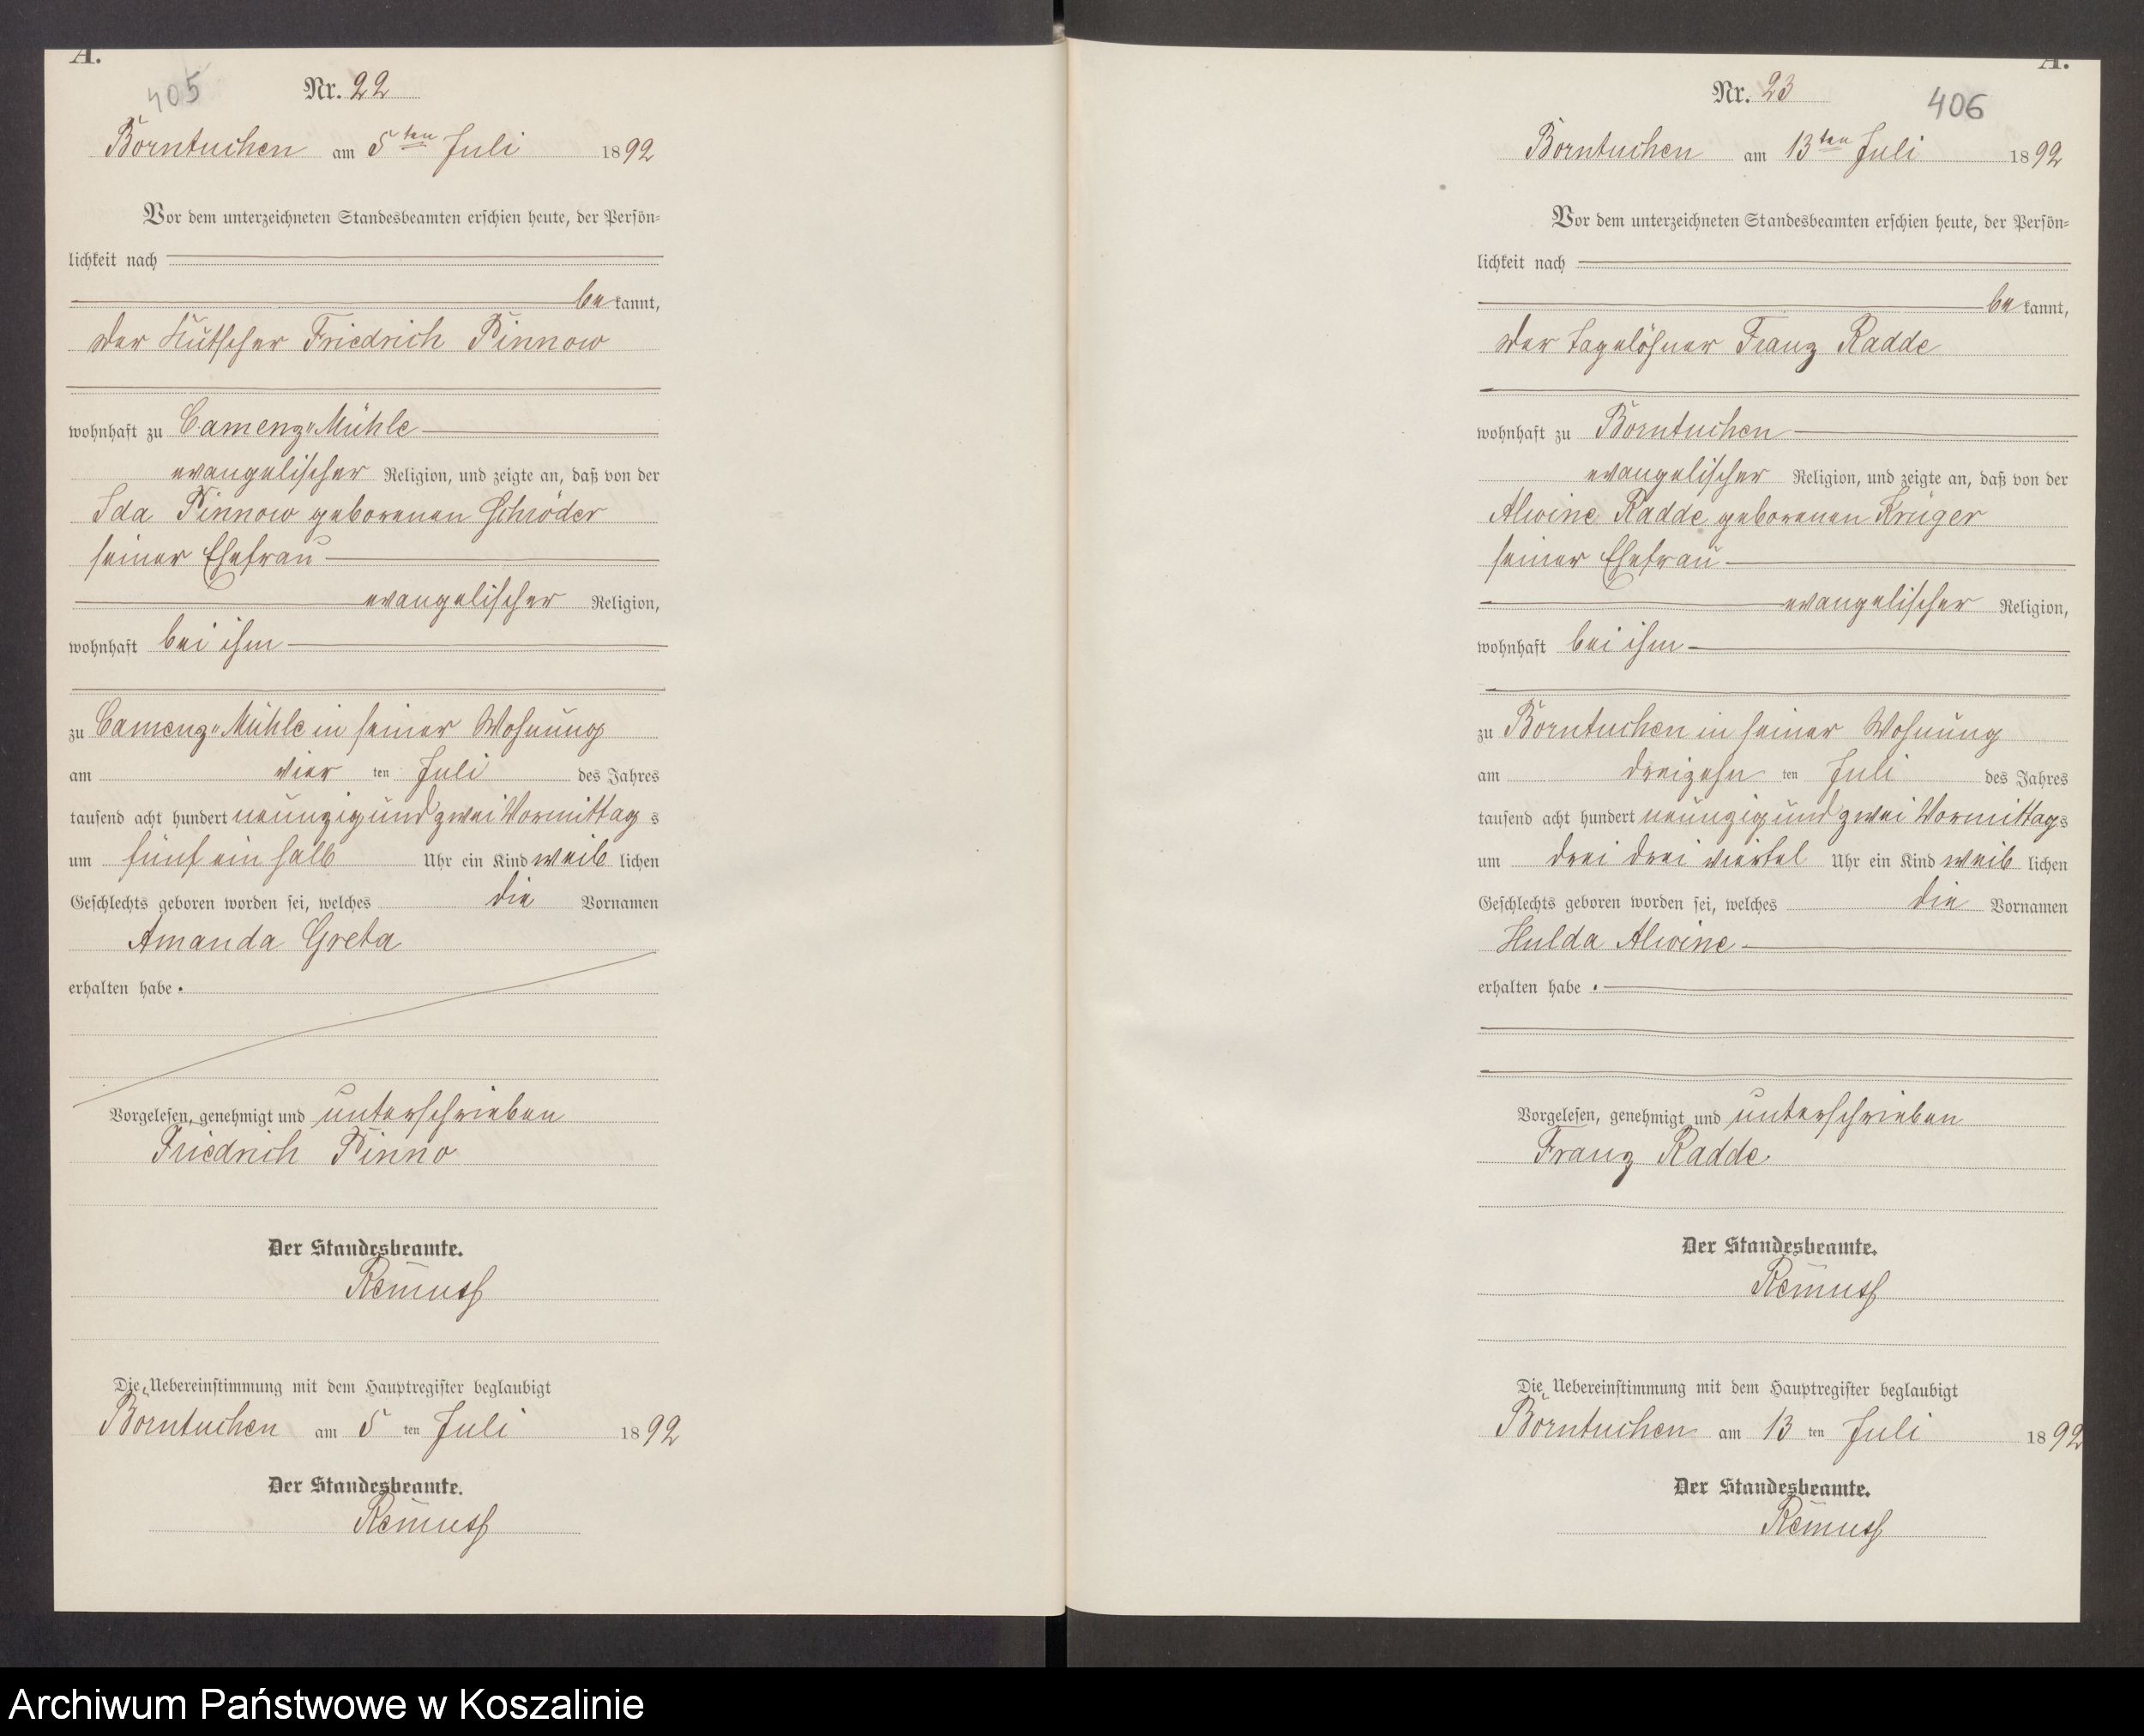 A.
405
Nr. 22
Borntuchen am 5ten Juli 1892
Vor dem unterzeichneten Standesbeamten erschien heute, der Persön-
lichkeit nach
be kannt,
der Kutscher Friedrich Pinnow
wohnhaft zu Camenz-Mühle
evangelischer Religion, und zeigte an, daß von der
Ida Pinnow geborenen Schröder
seiner Ehefrau
evangelischer Religion,
wohnhaft bei ihm
zu Camenz-Mühle in seiner Wohnung
am vier ten Juli des Jahres
tausend acht hundert neunzig und zwei Vormittag s
um fünf ein halb Uhr ein Kind weib lichen
Geschlechts geboren worden sei, welches die Vornamen
Amanda Greta
erhalten habe.
Vorgelesen, genehmigt und unterschrieben
Friedrich Pinno
Der Standesbeamte.
Remus
Die Uebereinstimmung mit dem Hauptregister beglaubigt
Borntuchen am 5 ten Juli 1892
Der Standesbeamte.
Remus
A.
Nr. 23
406
Borntuchen am 13ten Juli 1892
Vor dem unterzeichneten Standesbeamten erschien heute, der Persön-
lichkeit nach
be kannt,
der Tagelöhner Franz Radde
wohnhaft zu Borntuchen
evangelischer Religion, und zeigte an, daß von der
Alwine Radde geborenen Krüger
seiner Ehefrau
evangelischer Religion,
wohnhaft bei ihm
zu Borntuchen in seiner Wohnung
am dreizehn ten Juli des Jahres
tausend acht hundert neunzig und zwei Vormittags
um drei drei viertel Uhr ein Kind weib lichen
Geschlechts geboren worden sei, welches die Vornamen
Hulda Alwine
erhalten habe.
Vorgelesen, genehmigt und unterschrieben
Franz Radde
Der Standesbeamte.
Remus
Die Uebereinstimmung mit dem Hauptregister beglaubigt
Borntuchen am 13 ten Juli 1892
Der Standesbeamte.
Remus
Archiwum Państwowe w Koszalinie